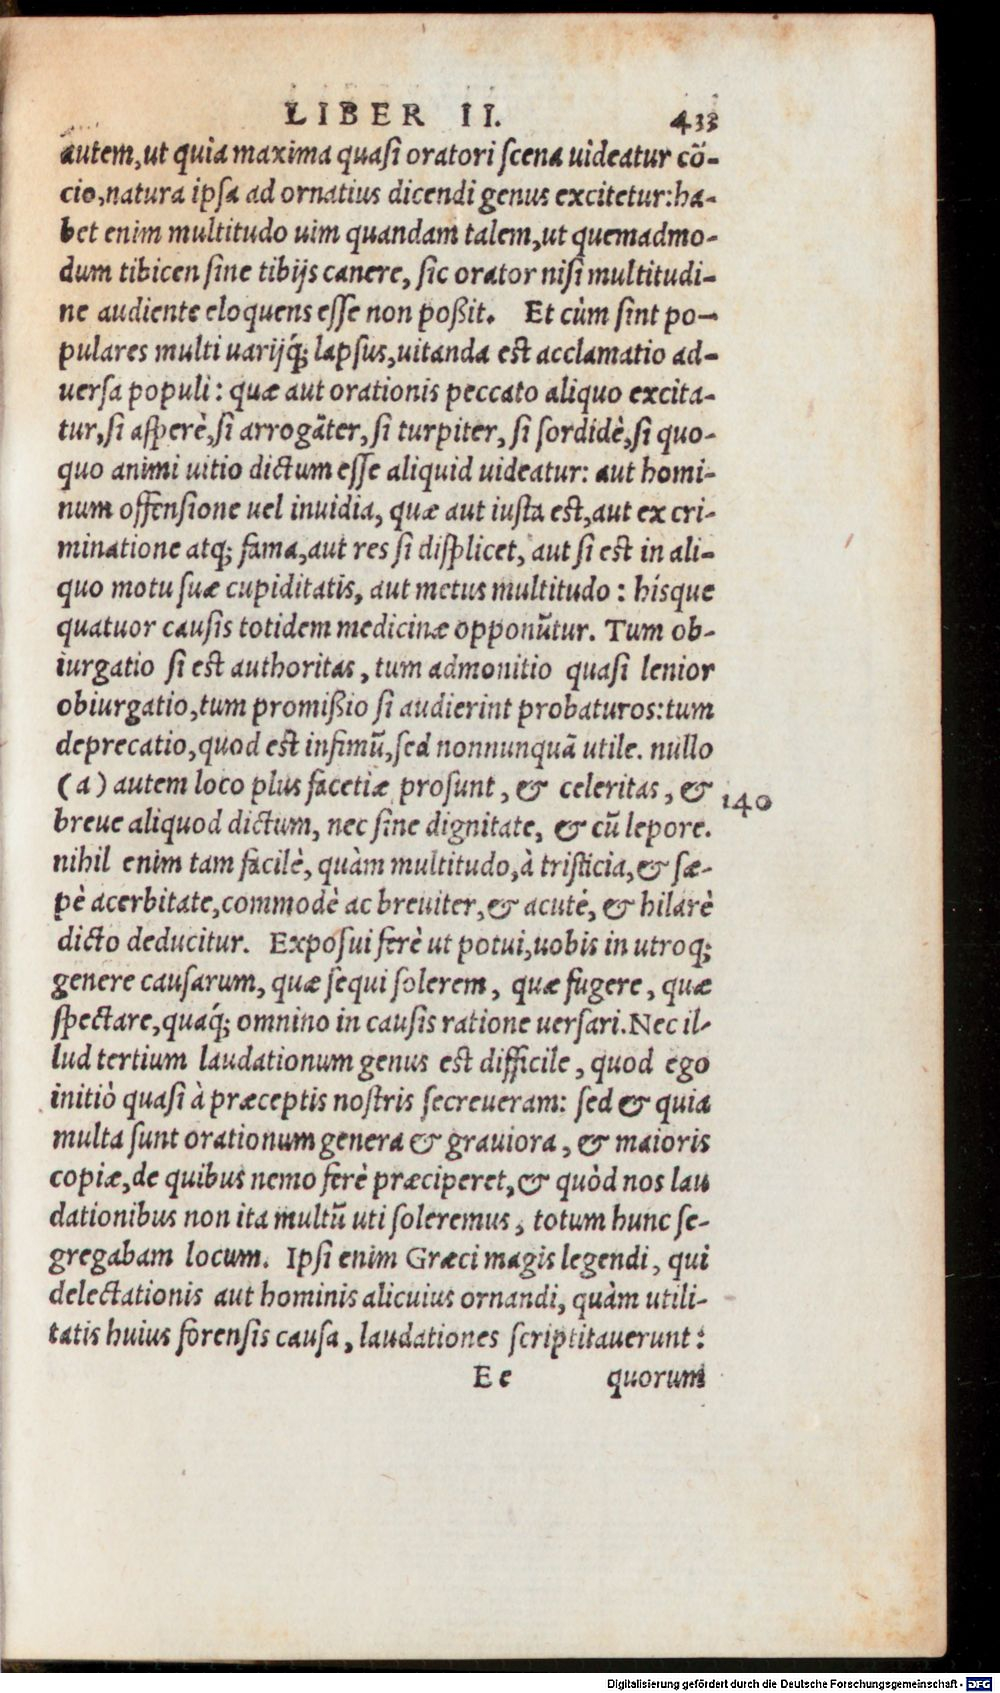 LIBER II. 433
autem, ut quia maxima quasi oratori scena uideatur cõ-
cio, natura ipsa ad ornatius dicendi genus excitetur: ha-
bet enim multitudo uim quandam talem, ut quemadmo-
dum tibicen sine tibijs canere, sic orator nisi multitudi-
ne audiente eloquens esse non poßit. Et cùm sint po-
pulares multi uarijq́; lapsus, uitanda est acclamatio ad-
uersa populi: quæ aut orationis peccato aliquo excita-
tur, si asperè, si arrogãter, si turpiter, si sordidè, si quo-
quo animi uitio dictum esse aliquid uideatur: aut homi-
num offensione uel inuidia, quæ aut iusta est, aut ex cri-
minatione atq; fama, aut res si displicet, aut si est in ali-
quo motu suæ cupiditatis, aut metus multitudo: hisque
quatuor causis totidem medicinæ opponũtur. Tum ob-
iurgatio si est authoritas, tum admonitio quasi lenior
obiurgatio, tum promißio si audierint probaturos: tum
deprecatio, quod est infimũ, sed nonnunquã utile. nullo
(a) autem loco plus facetiæ prosunt, & celeritas, & 140
breue aliquod dictum, nec sine dignitate, & cũ lepore.
nihil enim tam facilè, quàm multitudo, à tristicia, & sæ-
pè acerbitate, commodè ac breuiter, & acutè, & hilarè
dicto deducitur. Exposui ferè ut potui, uobis in utroq;
genere causarum, quæ sequi solerem, quæ fugere, quæ
spectare, quaq́; omnino in causis ratione uersari. Nec il-
lud tertium laudationum genus est difficile, quod ego
initiò quasi à præceptis nostris secreueram: sed & quia
multa sunt orationum genera & grauiora, & maioris
copiæ, de quibus nemo ferè præciperet, & quòd nos lau
dationibus non ita multũ uti soleremus, totum hunc se-
gregabam locum. Ipsi enim Græci magis legendi, qui
delectationis aut hominis alicuius ornandi, quàm utili-
tatis huius forensis causa, laudationes scriptitauerunt:
Ee quorum
Digitalisierung gefördert durch die Deutsche Forschungsgemeinschaft - DFG